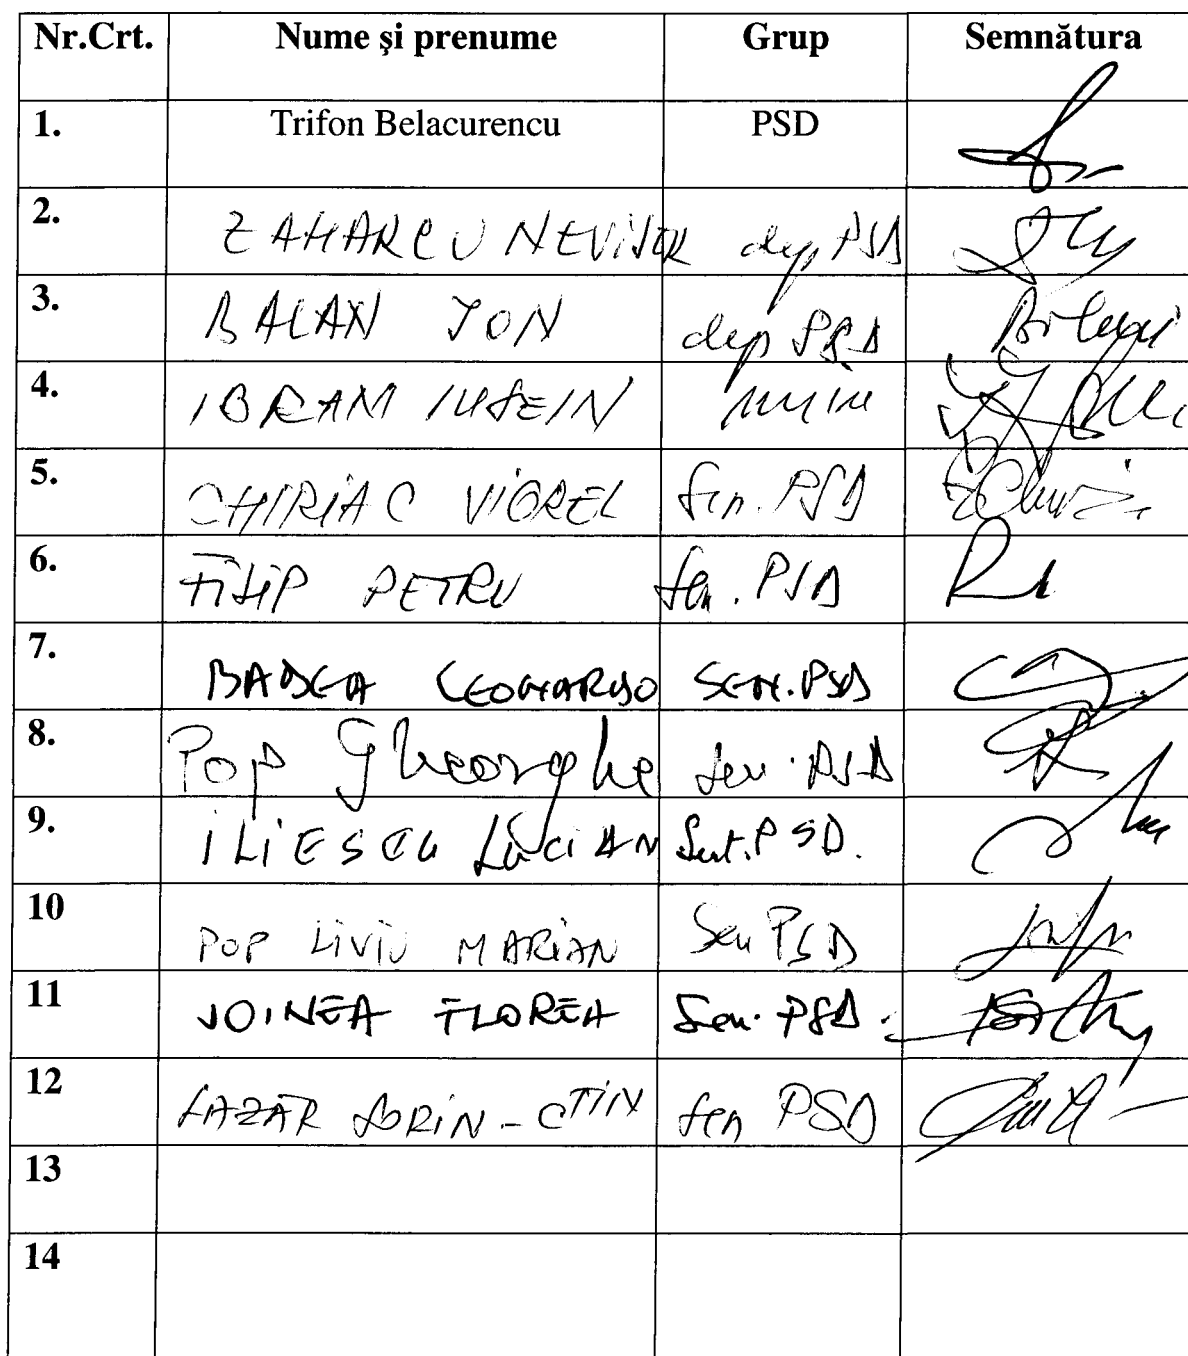 Nr.Crt. Nume și prenume Grup Semnătura
1. Trifon Belacurencu PSD
2. ZAHARCU NEVIJER dep PSD
3. BALAN ION dep PSD
4. IBRAM IUSEIN
5. CHIRIAC VIOREL Sen. PSD
6. FILIP PETRU Sen. PSD
7. BADEA LEONARDO SEN. PSD
8. Pop Gheorghe Sen. PSD
9. ILIESCU LUCIAN PSD.
10 POP LIVIU MARIAN Sen PSD
11 JOINEA FLOREA Sen. PSD.
12 LAZAR SORIN - CTIN Sen PSD
13
14